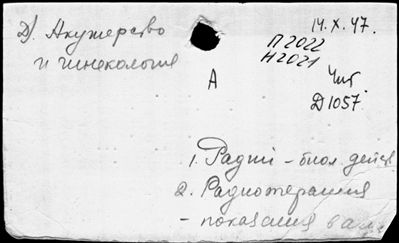 Д). Акушерство
и гинекология
14.X.47.
П2022
Н2021
А
Чит
Д1057
1. Радий - биол. дейст
2. Радиотерапия
- показания в аку